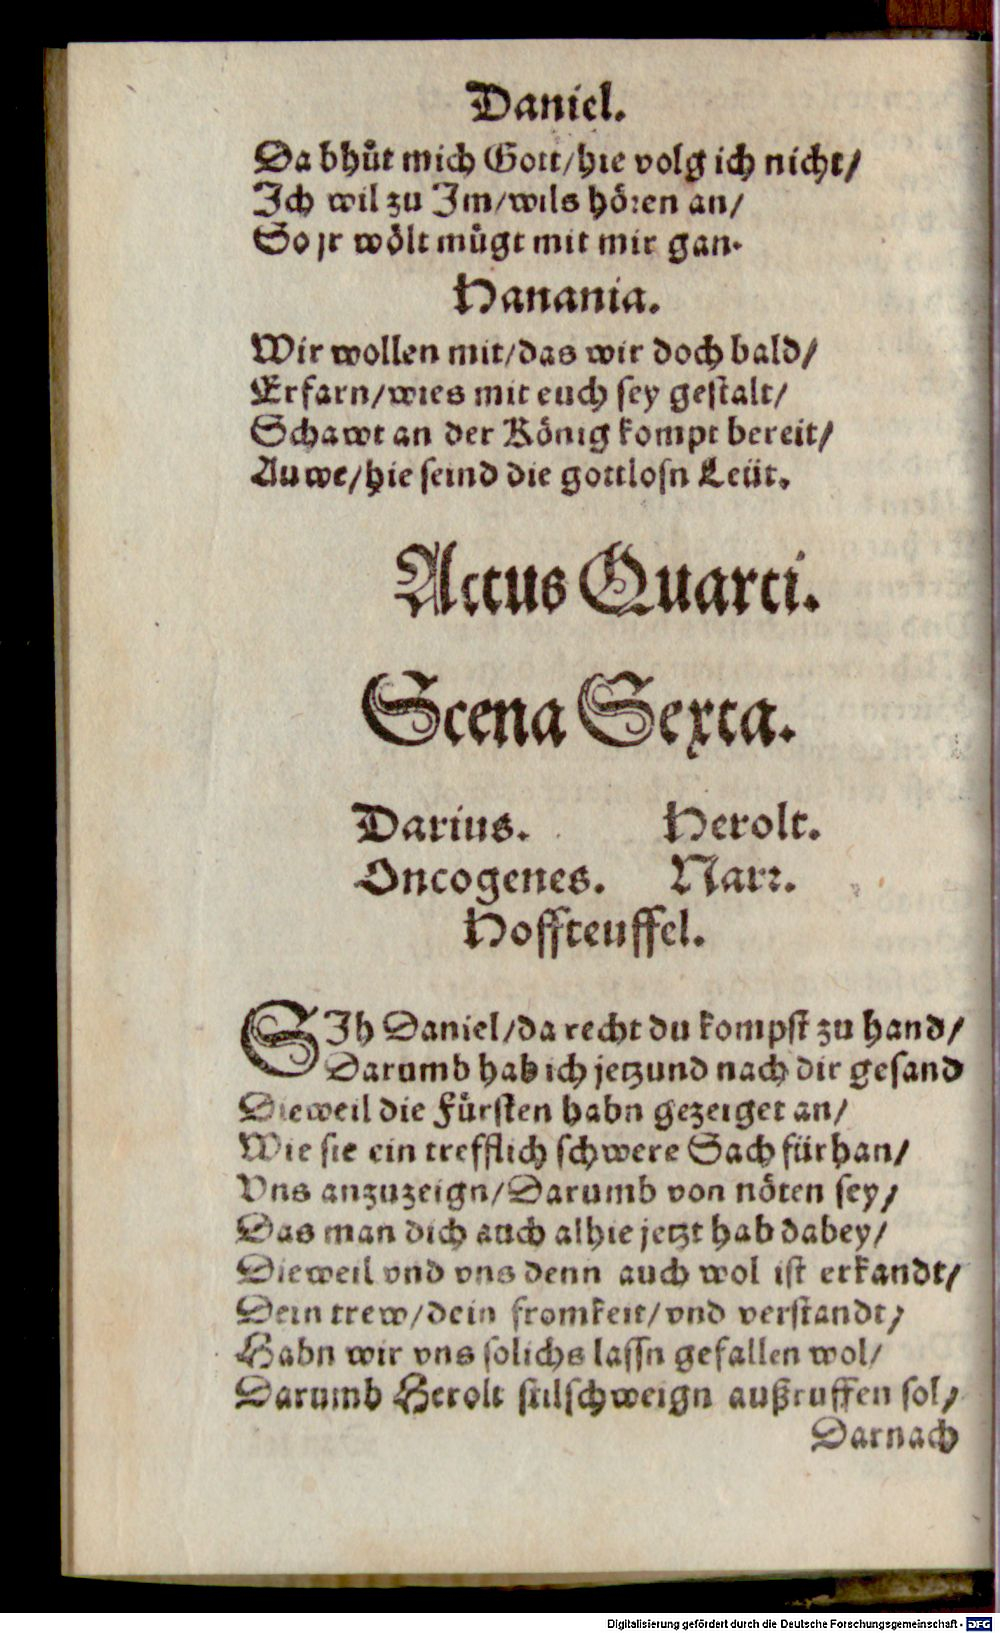 Daniel.
Da bhüt mich Gott/hie volg ich nicht/
Ich wil zu Im/wils hören an/
So jr wölt mügt mit mir gan.
Hanania.
Wir wollen mit/das wir doch bald/
Erfarn/wies mit euch sey gestalt/
Schawt an der König kompt bereit/
Auwe/hie seind die gottlosn Leüt.
Actus Quarti.
Scena Sexta.
Darius. Herolt.
Oncogenes. Narr.
Hoffteuffel.
SIh Daniel/da recht du kompst zu hand/
Darumb hab ich jetzund nach dir gesand
Dieweil die Fürsten habn gezeiget an/
Wie sie ein trefflich schwere Sach fürhan/
Vns anzuzeign/Darumb von nöten sey/
Das man dich auch alhie jetzt hab dabey/
Dieweil vnd vns denn auch wol ist erkandt/
Dein trew/dein fromkeit/vnd verstandt/
Habn wir vns solichs lassn gefallen wol/
Darumb Herolt stilschweign außruffen sol/
Darnach
Digitalisierung gefördert durch die Deutsche Forschungsgemeinschaft - DFG